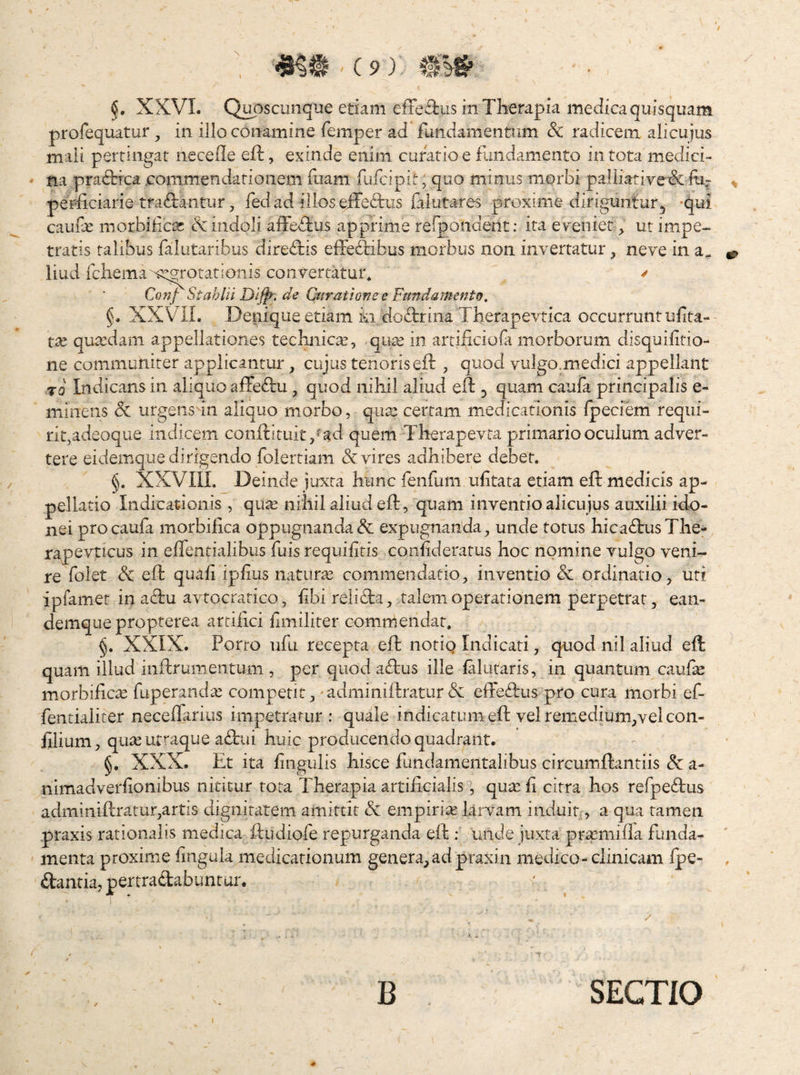 (9)
§. XXVI. Quoscunque etiam effectus in Therapia medica quisquam
proſequatur, in illo conamine ſemper ad fundamentum & radicem alicujus
mali pertingat neceſſe eſt, exinde enim curatio e fundamento in tota medici-
na practica commendationem ſuam ſuſcipit, quo minus morbi palliative & ſu-
perficiarie tractantur, ſed ad illos effectus ſalutares proxime diriguntur, qui
cauſæ morbificæ & indoli affectus apprime reſpondent: ita eveniet, ut impe-
tratis talibus ſalutaribus directis effectibus morbus non invertatur, neve in a-
liud ſchema ægrotationis convertatur.
Conf Stahlii Diſſ. de Curatione e Fundamento.
§. XXVII. Denique etiam in doctrina Therapevtica occurrunt uſita-
tæ quædam appellationes technicæ, quæ in artificioſa morborum disquiſitio-
ne communiter applicantur, cujus tenoris eſt, quod vulgo medici appellant
τὸ Indicans in aliquo affectu, quod nihil aliud eſt, quam cauſa principalis e-
minens & urgens in aliquo morbo, quæ certam medicationis ſpeciem requi-
rit, adeoque indicem conſtituit, ad quem Therapevta primario oculum adver-
tere eidemque dirigendo ſolertiam & vires adhibere debet.
§. XXVIII. Deinde juxta hunc ſenſum uſitata etiam eſt medicis ap-
pellatio Indicationis, quæ nihil aliud eſt, quam inventio alicujus auxilii ido-
nei pro cauſa morbifica oppugnanda & expugnanda, unde totus hic actus The-
rapevticus in eſſentialibus ſuis requiſitis conſideratus hoc nomine vulgo veni-
re ſolet & eſt quaſi ipſius naturæ commendatio, inventio & ordinatio, uti
ipſamet in actu avtocratico, ſibi relicta, talem operationem perpetrat, ean-
demque propterea artifici ſimiliter commendat.
§. XXIX. Porro uſu recepta eſt notio Indicati, quod nil aliud eſt
quam illud inſtrumentum, per quod actus ille ſalutaris, in quantum cauſæ
morbificæ ſuperandæ competit, adminiſtratur & effectus pro cura morbi eſ-
ſentialiter neceſſarius impetratur: quale indicatum eſt vel remedium, vel con-
ſilium, quæ utraque actui huic producendo quadrant.
§. XXX. Et ita ſingulis hisce fundamentalibus circumſtantiis & a-
nimadverſionibus nititur tota Therapia artificialis, quæ ſi citra hos reſpectus
adminiſtratur, artis dignitatem amittit & empiriæ larvam induit, a qua tamen
praxis rationalis medica ſtudioſe repurganda eſt: unde juxta præmiſſa funda-
menta proxime ſingula medicationum genera, ad praxin medico-clinicam ſpe-
ctantia, pertractabuntur.
B SECTIO